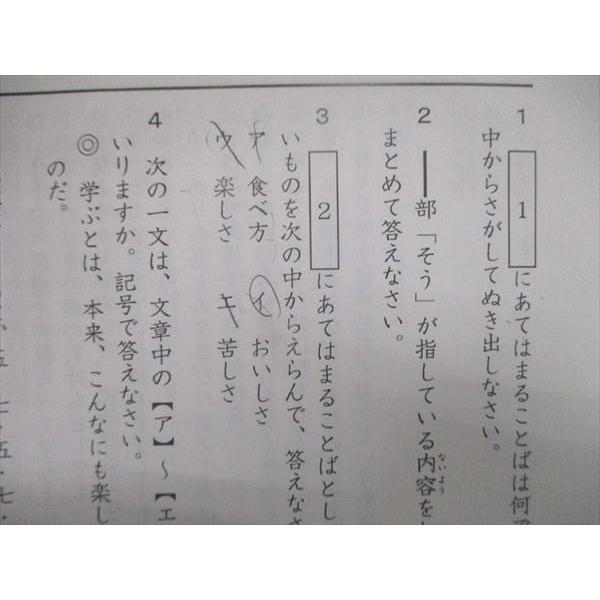 1 1 にあてはまることばは何
中からさがしてぬき出しなさい。
2 ――部「そう」が指している内容を
ないよう
まとめて答えなさい。
3 2 にあてはまることばとし
いものを次の中からえらんで、答えなさ
ア 食べ方 イ おいしさ
ウ 楽しさ エ 苦しさ
4 次の一文は、文章中の【ア】～【エ
いりますか。記号で答えなさい。
◎ 学ぶとは、本来、こんなにも楽し
のだ。
五・七・